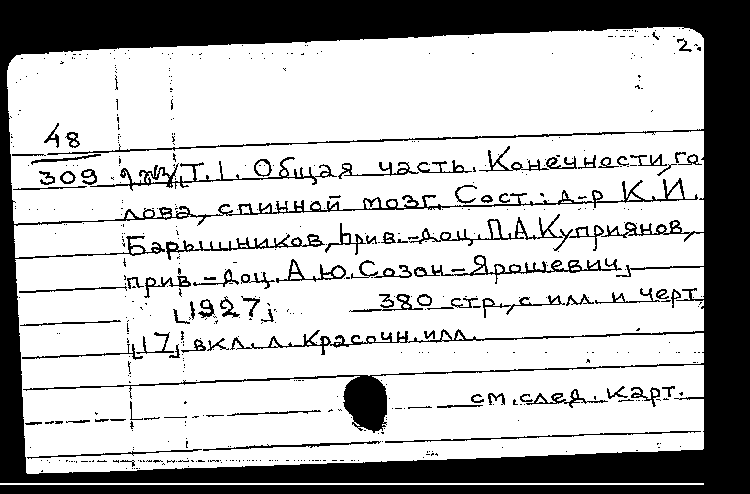 2.
48
309 Т.I. Общая часть. Конечности, го-
лова, спинной мозг. Сост.: д-р К.И.
Барышников, прив.-доц. П.А. Куприянов,
прив.-доц. А.Ю. Созон-Ярошевич,
[1927] 380 стр., с илл. и черт,
[17] вкл. л. красочн. илл.
см. след. карт.